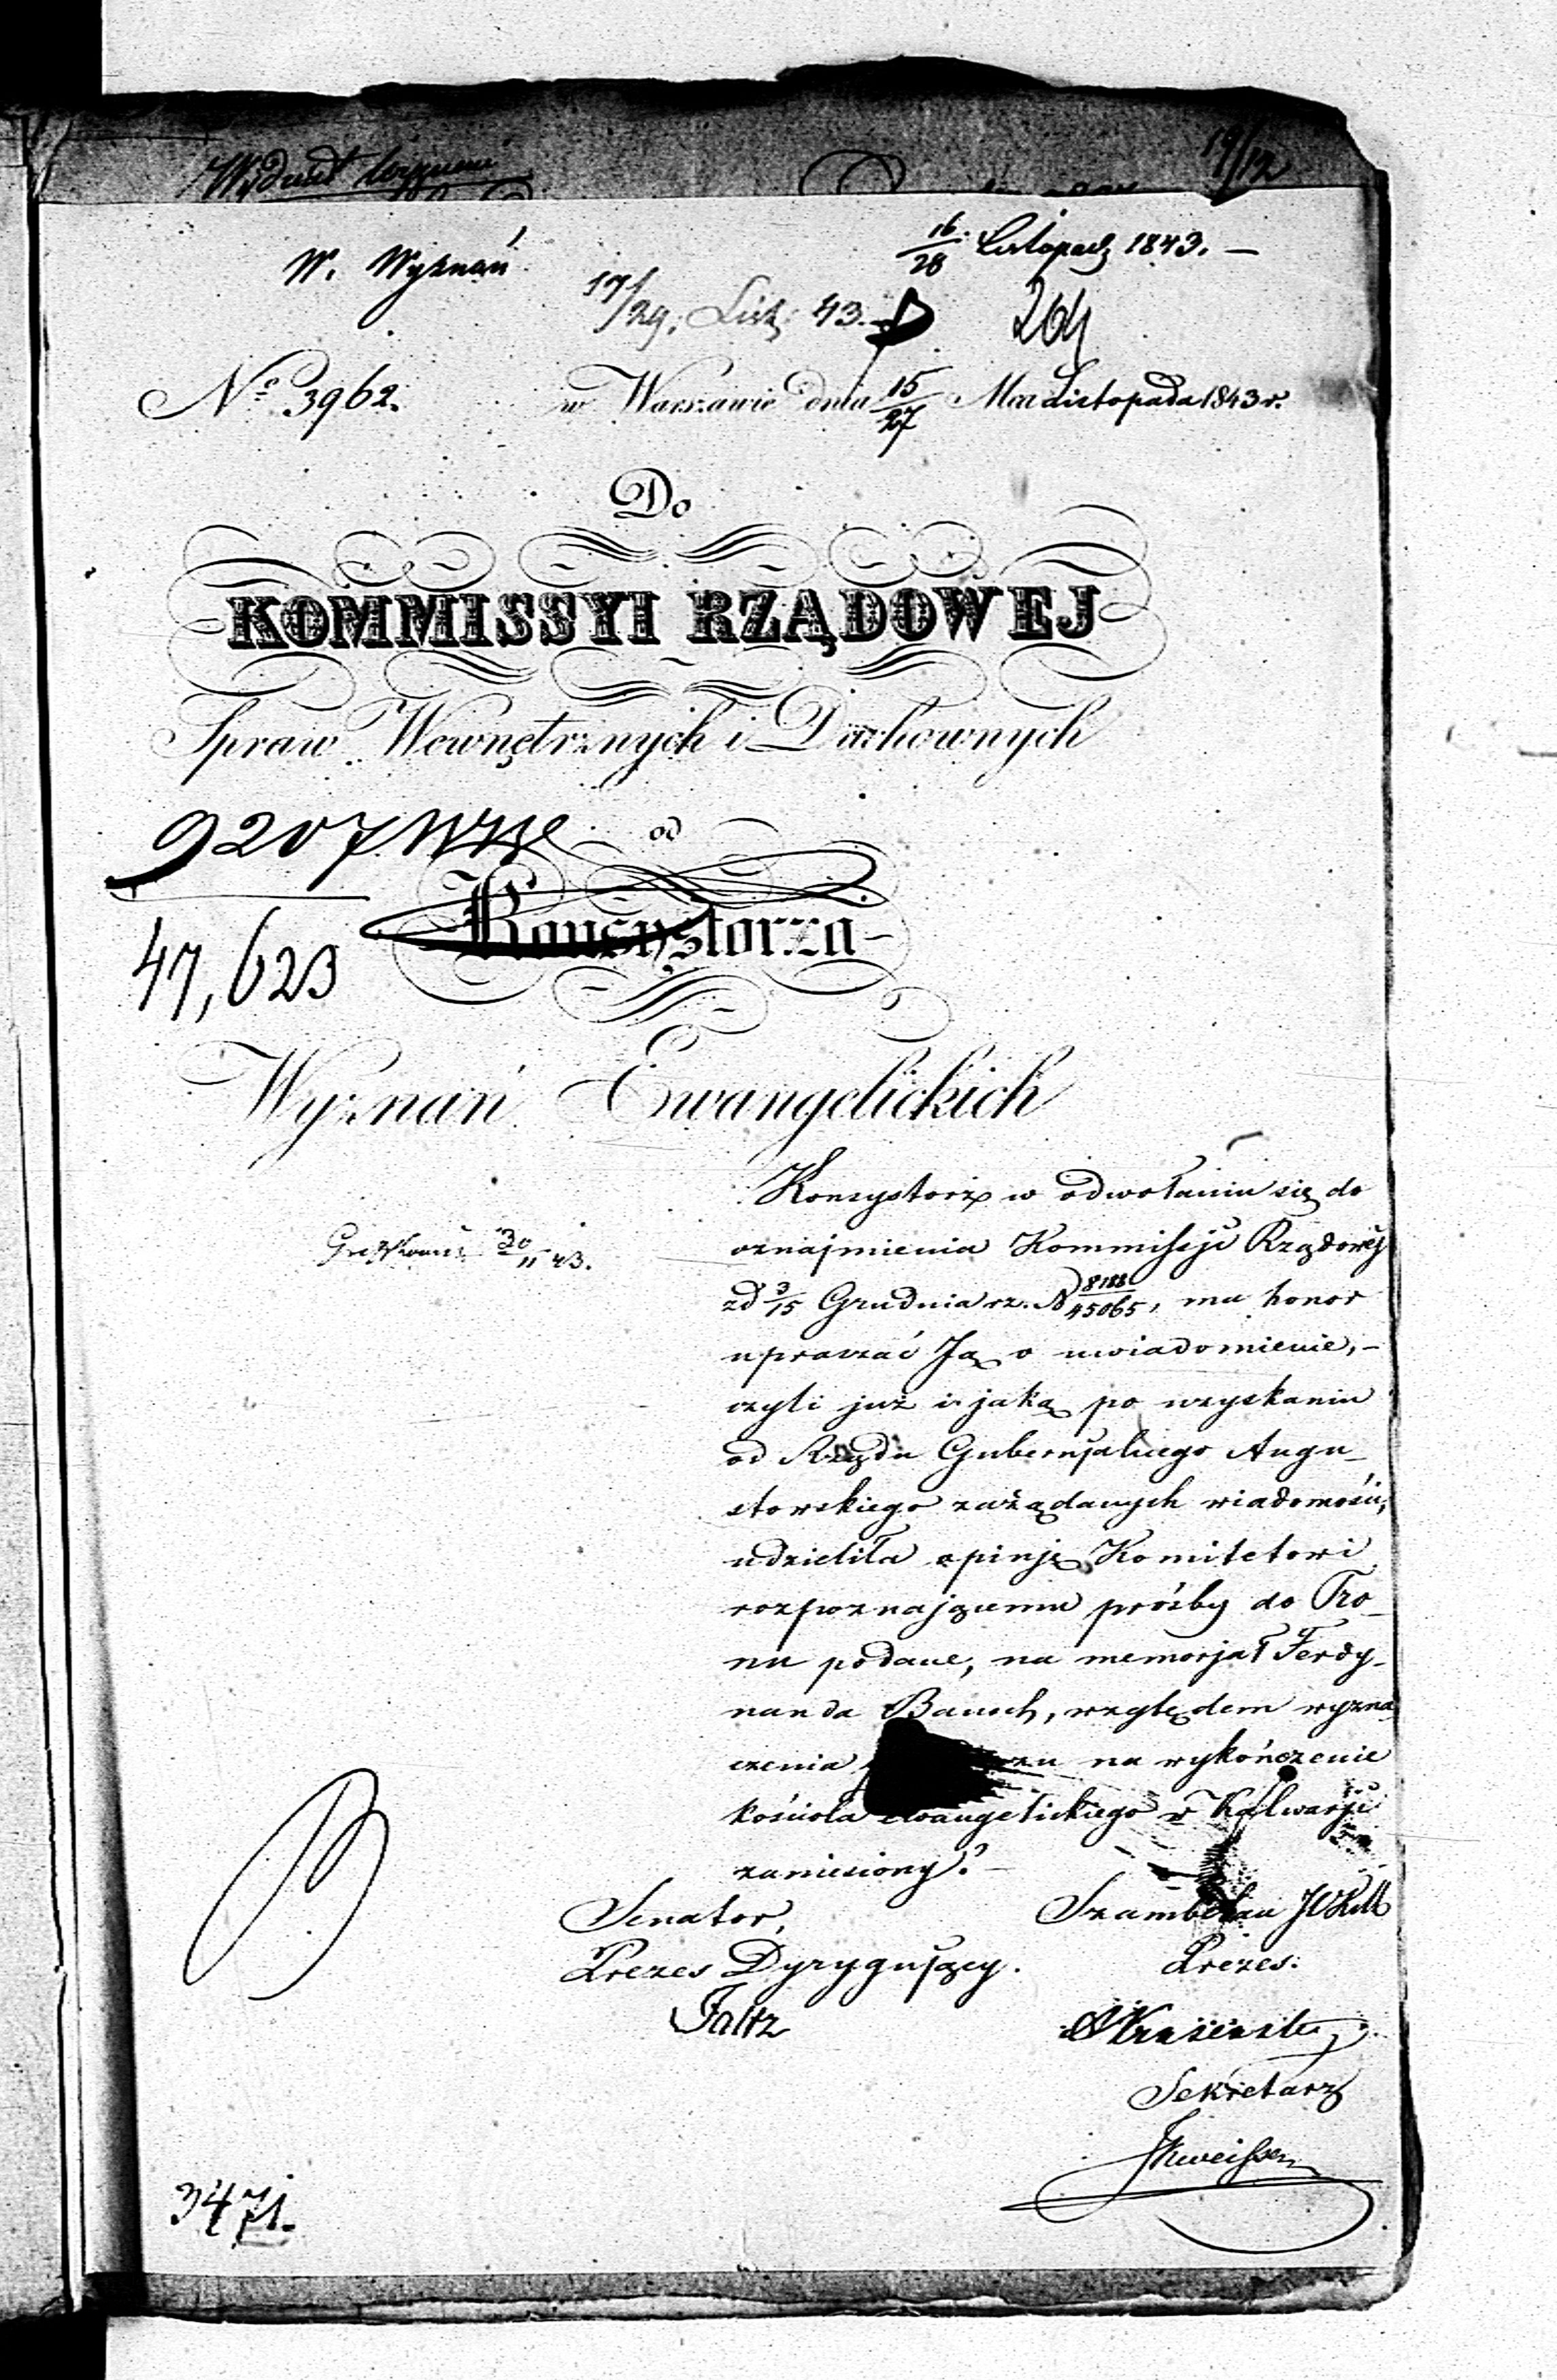 19/12
W. Wyznań
16/28 Listopad 1843. —
17/29. List: 43.
264
№ 3962.
w Warszawie dnia 15/27 Mca Listopada 1843 r.
Do
KOMMISSYI RZĄDOWEJ
Spraw Wewnętrznych i Duchownych
9207
od
47,623
Konsystorza
Wyznań Ewangelickich
Konsystorz w odwołaniu się do
30/11 43.
oznajmienia Kommissji Rządowéj
zd 3/15 Grudnia rz. № 8188/45065, ma honor
upraszać Ją o uwiadomienie, —
czyli już i jaką po uzyskaniu
od Rządu Gubernjalnego Augu-
stowskiego zażądanych wiadomości,
udzieliła opinję Komitetowi
rozpoznającemu prośby do Tro-
nu podane, na memorjał Ferdy-
nanda Banoch, względem wyzna
czenia na wykończenie
kościoła Ewangelickiego w Kalwarji
zaniesiony? —
Senator,
Szambelan JCKM
Prezes Dyrygujący.
Prezes.
Faltz
Sekretarz
3471.